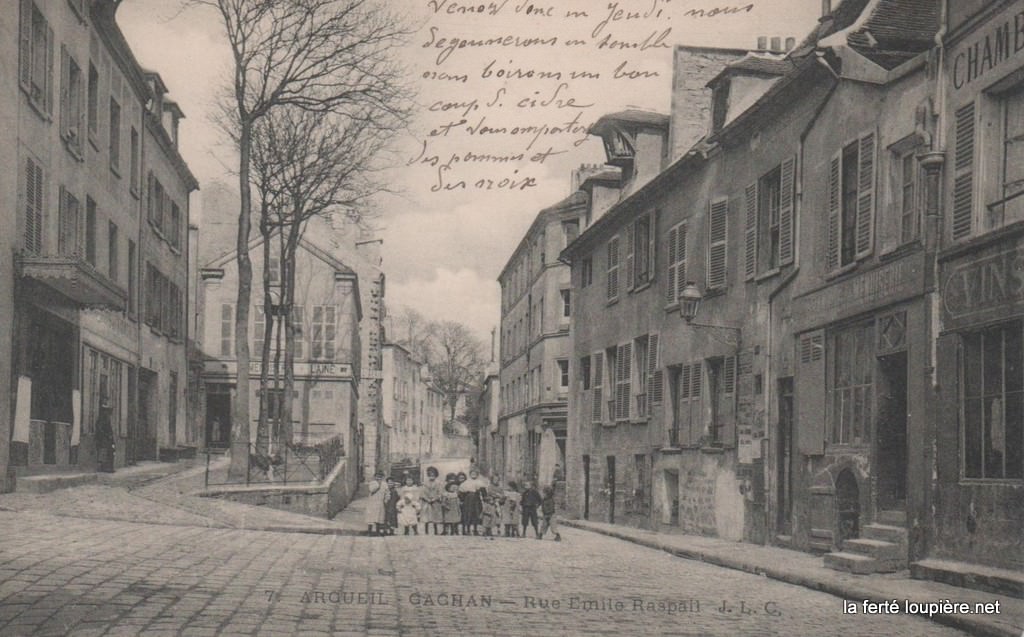 Venez donc un Jeudi. nous
degounerons en semble
nous boirons un bon
coup. d. cidre
et vous omporterez
des pommes et
des noix
CHAMB
VINS
LAINE
7. ARCUEIL - CACHAN — Rue Emile Raspail J. L. C.
la ferté loupière.net